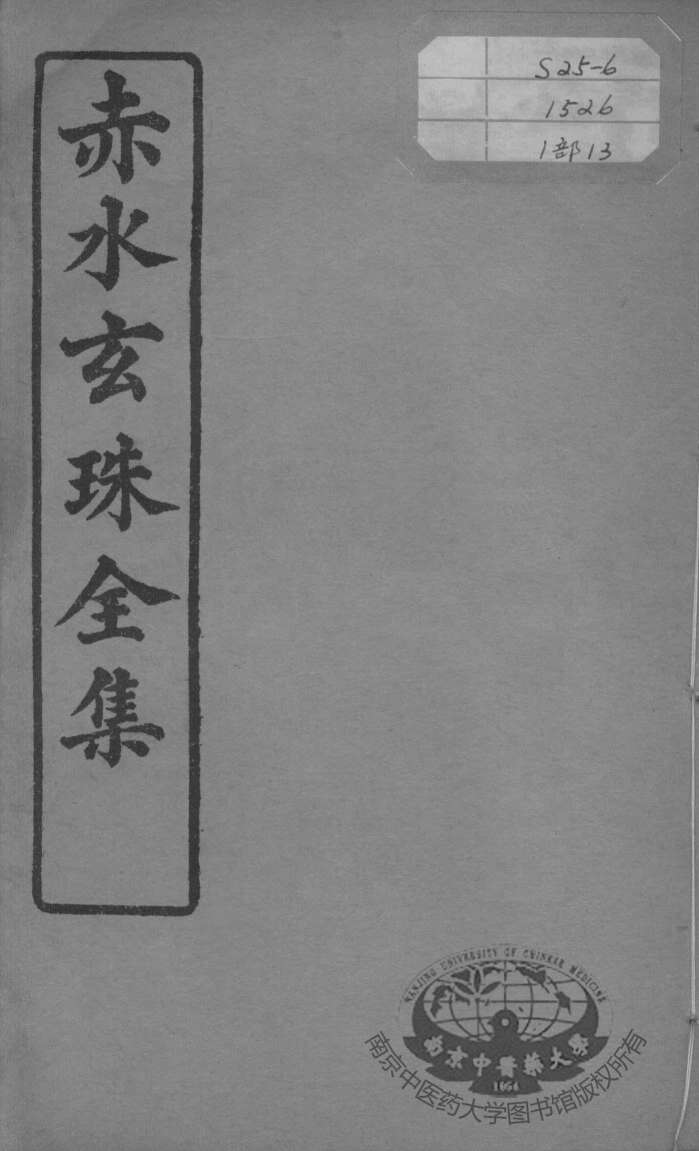 赤水玄珠全集
S25-6
1526
1部13
NANJING UNIVERSITY OF CHINESE MEDICINE
南京中醫藥大學
1954
南京中医药大学图书馆版权所有